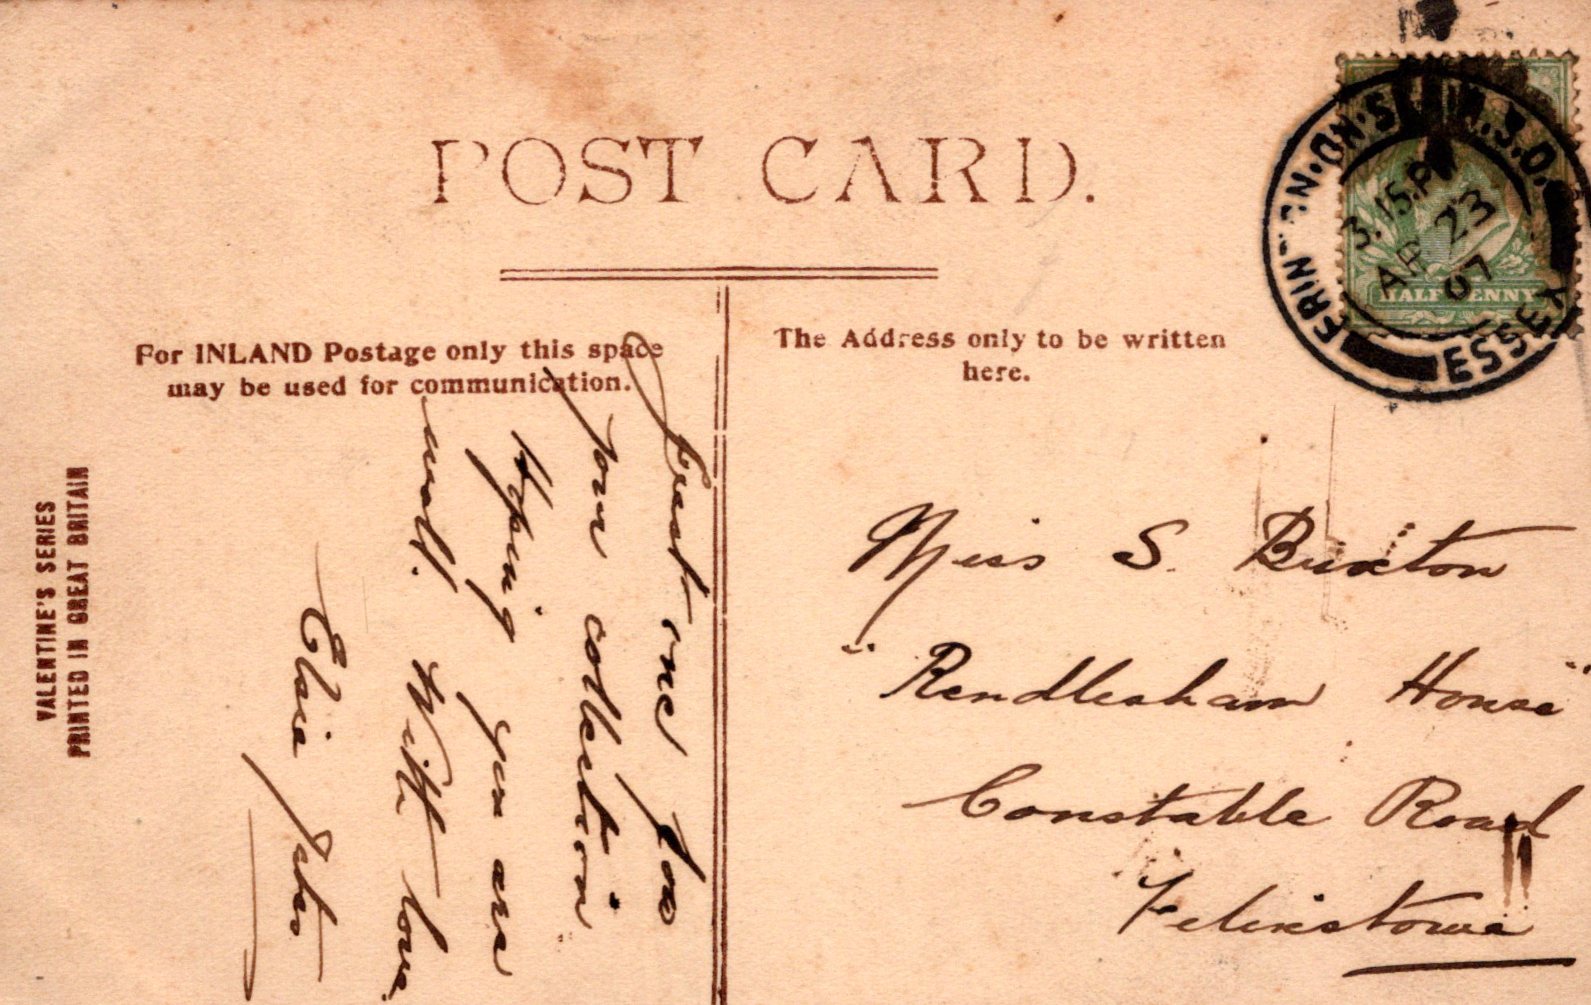 POST CARD.
For INLAND Postage only this space
may be used for communication.
The Address only to be written
here.
VALENTINE'S SERIES
PRINTED IN GREAT BRITAIN
Just one for
your collection
Hoping you are
well. With love
Elsie
Miss S. Buxton
"Rendlesham House"
Constable Road
Felixstowe
FRINTON-ON-SEA S.O.
3.15.P
AP 23
07
ESSEX
HALFPENNY